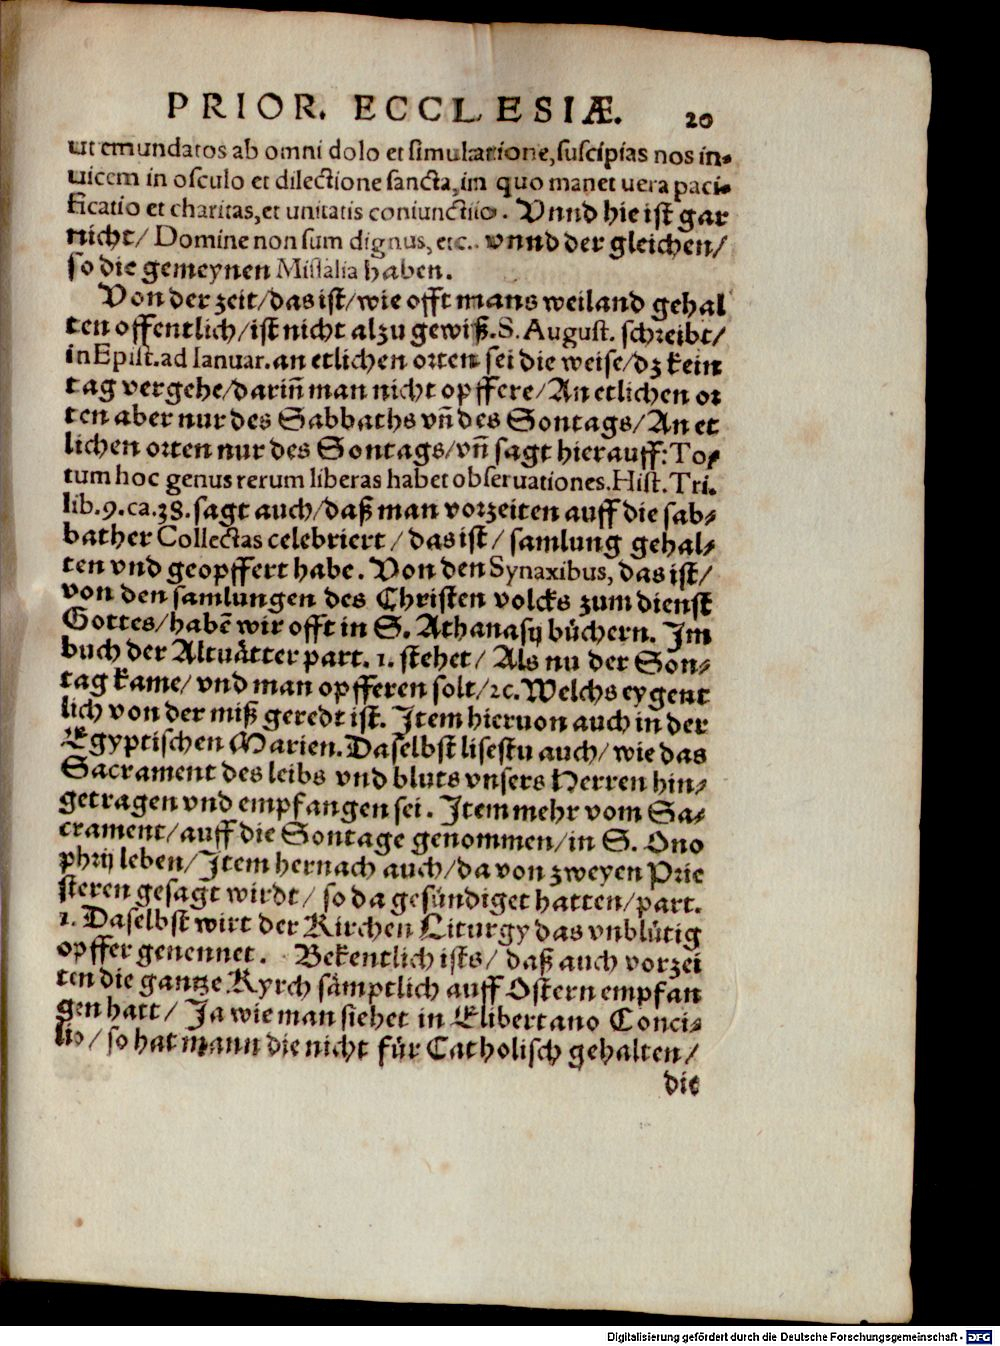 PRIOR. ECCLESIÆ. 20
ut emundatos ab omni dolo et simulatione, suscipias nos in-
uicem in osculo et dilectione sancta, in quo manet uera paci-
ficatio et charitas, et unitatis coniunctio. Vnnd hie ist gar
nicht/ Domine non sum dignus, etc. vnnd der gleichen/
so die gemeynen Missalia haben.
Von der zeit/das ist/wie offt mans weiland gehal
ten offentlich/ist nicht alzu gewiß. S. August. schreibt/
in Epist. ad Ianuar. an etlichen orten sei die weise/dz kein
tag vergehe/darin̄ man nicht opffere/An etlichen or
ten aber nur des Sabbaths vn̄ des Sontags/An et
lichen orten nur des Sontags/vn̄ sagt hierauff: To-
tum hoc genus rerum liberas habet obseruationes. Hist. Tri.
lib. 9. ca. 38. sagt auch/daß man vorzeiten auff die sab-
bather Collectas celebriert/das ist/ samlung gehal-
ten vnd geopffert habe. Von den Synaxibus, das ist/
von den samlungen des Christen volcks zum dienst
Gottes/habē wir offt in S. Athanasij büchern. Im
buch der Altuätter part. 1. stehet/ Als nu der Son-
tag kame/ vnd man opfferen solt/ꝛc. Welchs eygent
lich von der miß geredt ist. Item hieruon auch in der
Egyptischen Marien. Daselbst lisestu auch/ wie das
Sacrament des leibs vnd bluts vnsers Herren hin-
getragen vnd empfangen sei. Item mehr vom Sa-
crament/auff die Sontage genommen/in S. Ono
phrij leben/Item hernach auch/da von zweyen Prie
steren gesagt wirdt/ so da gesündiget hatten/part.
1. Daselbst wirt der Kirchen Liturgy das vnblütig
opffer genennet. Bekentlich ists/ daß auch vorzei
ten die gantze Kyrch sämptlich auff Ostern empfan
gen hatt/ Ja wie man siehet in Elibertano Conci-
lio/ so hat mann die nicht für Catholisch gehalten/
die
Digitalisierung gefördert durch die Deutsche Forschungsgemeinschaft - DFG